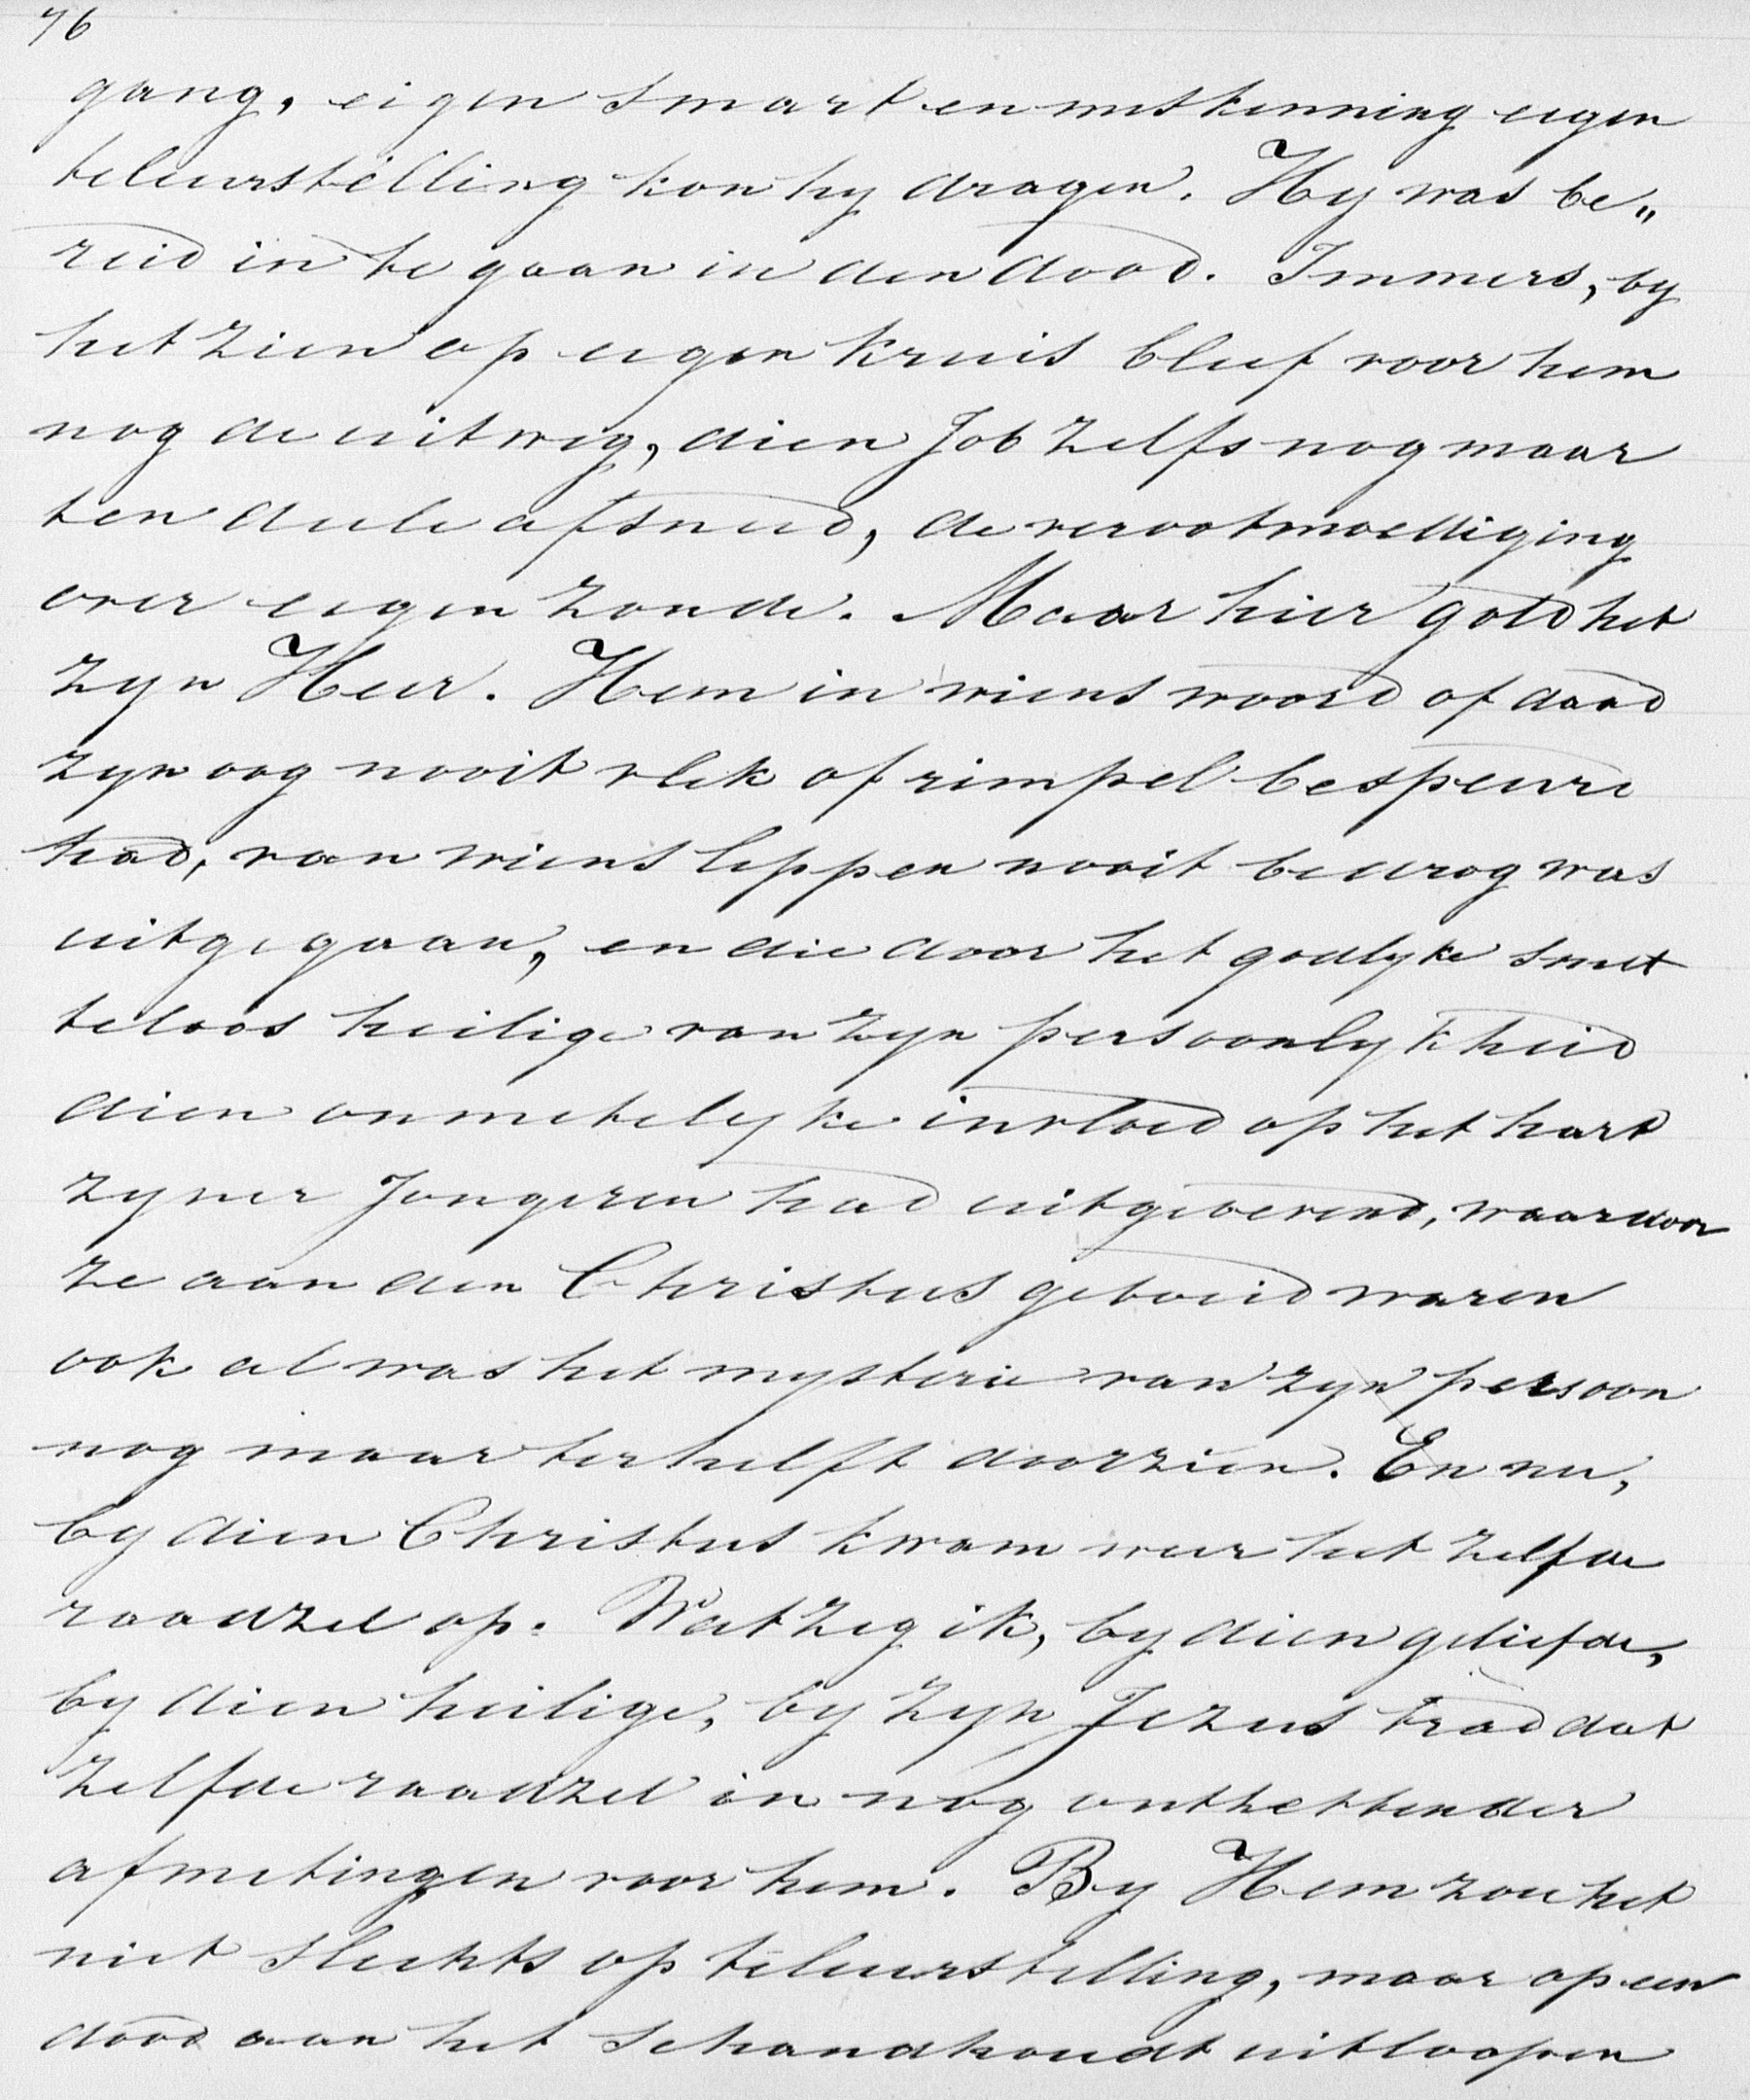 76
gang, eigen smart en miskenning eigen
teleurstelling kon hy dragen. Hy was be„
reid in te gaan in den dood. Immers, by
het zien op eigen kruis bleef voor hem
nog de uitweg, dien Job zelfs nog maar
ten deele afsneed, de verootmoediging
over eigen zonde. Maar hier gold het
zyn Heer. Hem in wiens woord of daad
zyn oog nooit vlek of rimpel bespeurd
had, van wiens lippen nooit bedrog was
uitgegaan, en die door het godlyke smet
teloos heilige van zyn persoonlykheid
dien onmetelyke invloed op het hart
zyner Jongeren had uitgeoefend, waardoor
ze aan den Christus geboeid waren
ook al was het mysterie van zyn persoon
nog maar ter helft doorzien. En nu,
by dien Christus kwam weer het zelfde
raadzel op. Wat zeg ik, by dien geliefde,
by dien heilige, by zyn Jezus trad dat
zelfde raadzel in nog ontzettender
afmetingen voor hem. By Hem zou het
niet slechts op teleurstelling, maar op een
dood aan het schandhoudt uitloopen